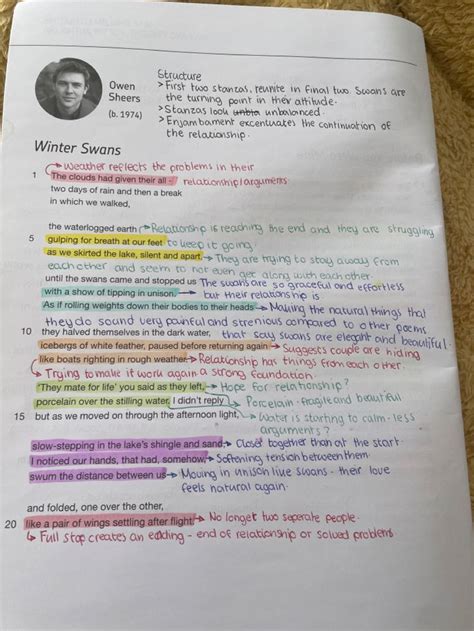 Structure
Owen
Sheers
(b. 1974)
> First two stanzas, reunite in final two. Swans are
the turning point in their attitude.
> Stanzas look unbla unbalanced.
> Enjambament excentuates the continuation of
the relationship.
Winter Swans
Weather reflects the problems in their
1 The clouds had given their all – relationship/arguments
two days of rain and then a break
in which we walked,
the waterlogged earth → Relationship is reaching the end and they are struggling
5 gulping for breath at our feet to keep it going.
as we skirted the lake, silent and apart, → They are trying to stay away from
each other and seem to not even get along with each other
until the swans came and stopped us The swans are so graceful and effortless
with a show of tipping in unison. but their relationship is
As if rolling weights down their bodies to their heads → Making the natural things that
they do sound very painful and strenious compared to other poems
10 they halved themselves in the dark water, that say swans are elegant and beautiful.
icebergs of white feather, paused before returning again → Suggests couple are hiding
like boats righting in rough weather. → Relationship has things from each other.
↳ Trying to make it work again a strong foundation
'They mate for life' you said as they left, → Hope for relationship?
porcelain over the stilling water. I didn't reply → Porcelain - fragile and beautiful
15 but as we moved on through the afternoon light, ↳ Water is starting to calm - less
arguments?
slow-stepping in the lake's shingle and sand, → Closer together than at the start
I noticed our hands, that had, somehow, → Softening tension between them
swum the distance between us → Moving in unison live swans - their love
feels natural again.
and folded, one over the other,
20 like a pair of wings settling after flight. → No longer two seperate people.
↳ Full stop creates an ending - end of relationship or solved problems